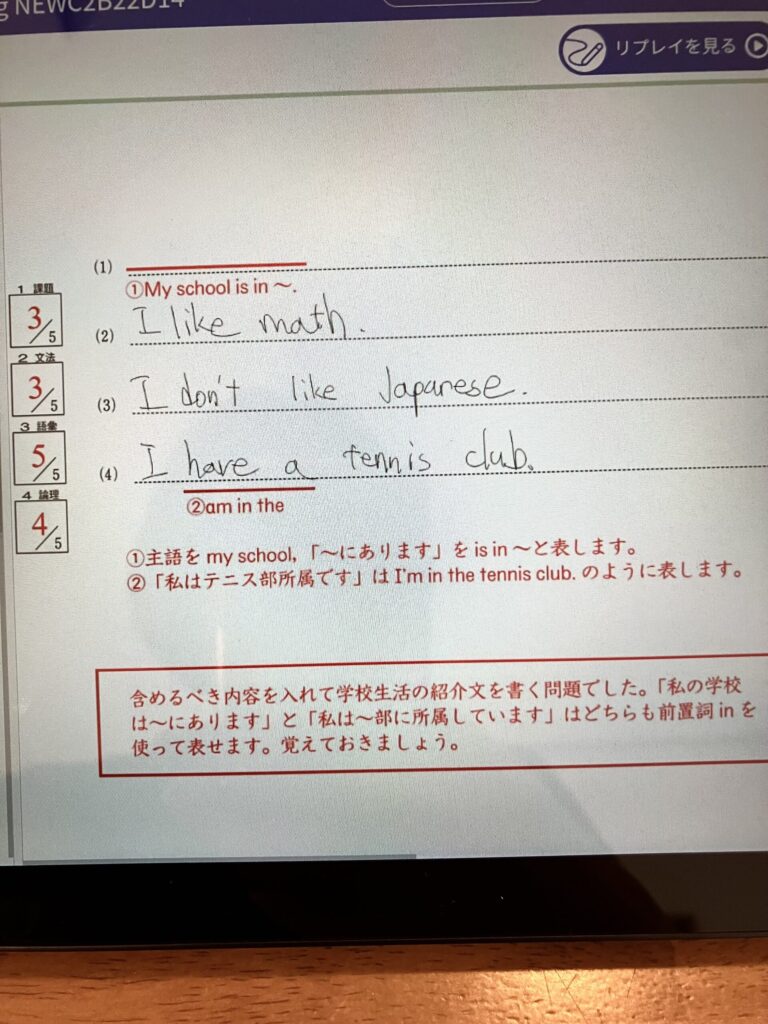 g NEWC2B22D14
リプレイを見る
(1)
①My school is in ～.
1 課題
3/5
(2) I like math.
2 文法
3/5
(3) I don't like Japanese.
3 語彙
5/5
(4) I have a tennis club.
②am in the
4 論理
4/5
①主語を my school,「～にあります」を is in ～と表します。
②「私はテニス部所属です」は I'm in the tennis club. のように表します。
含めるべき内容を入れて学校生活の紹介文を書く問題でした。「私の学校
は～にあります」と「私は～部に所属しています」はどちらも前置詞 in を
使って表せます。覚えておきましょう。